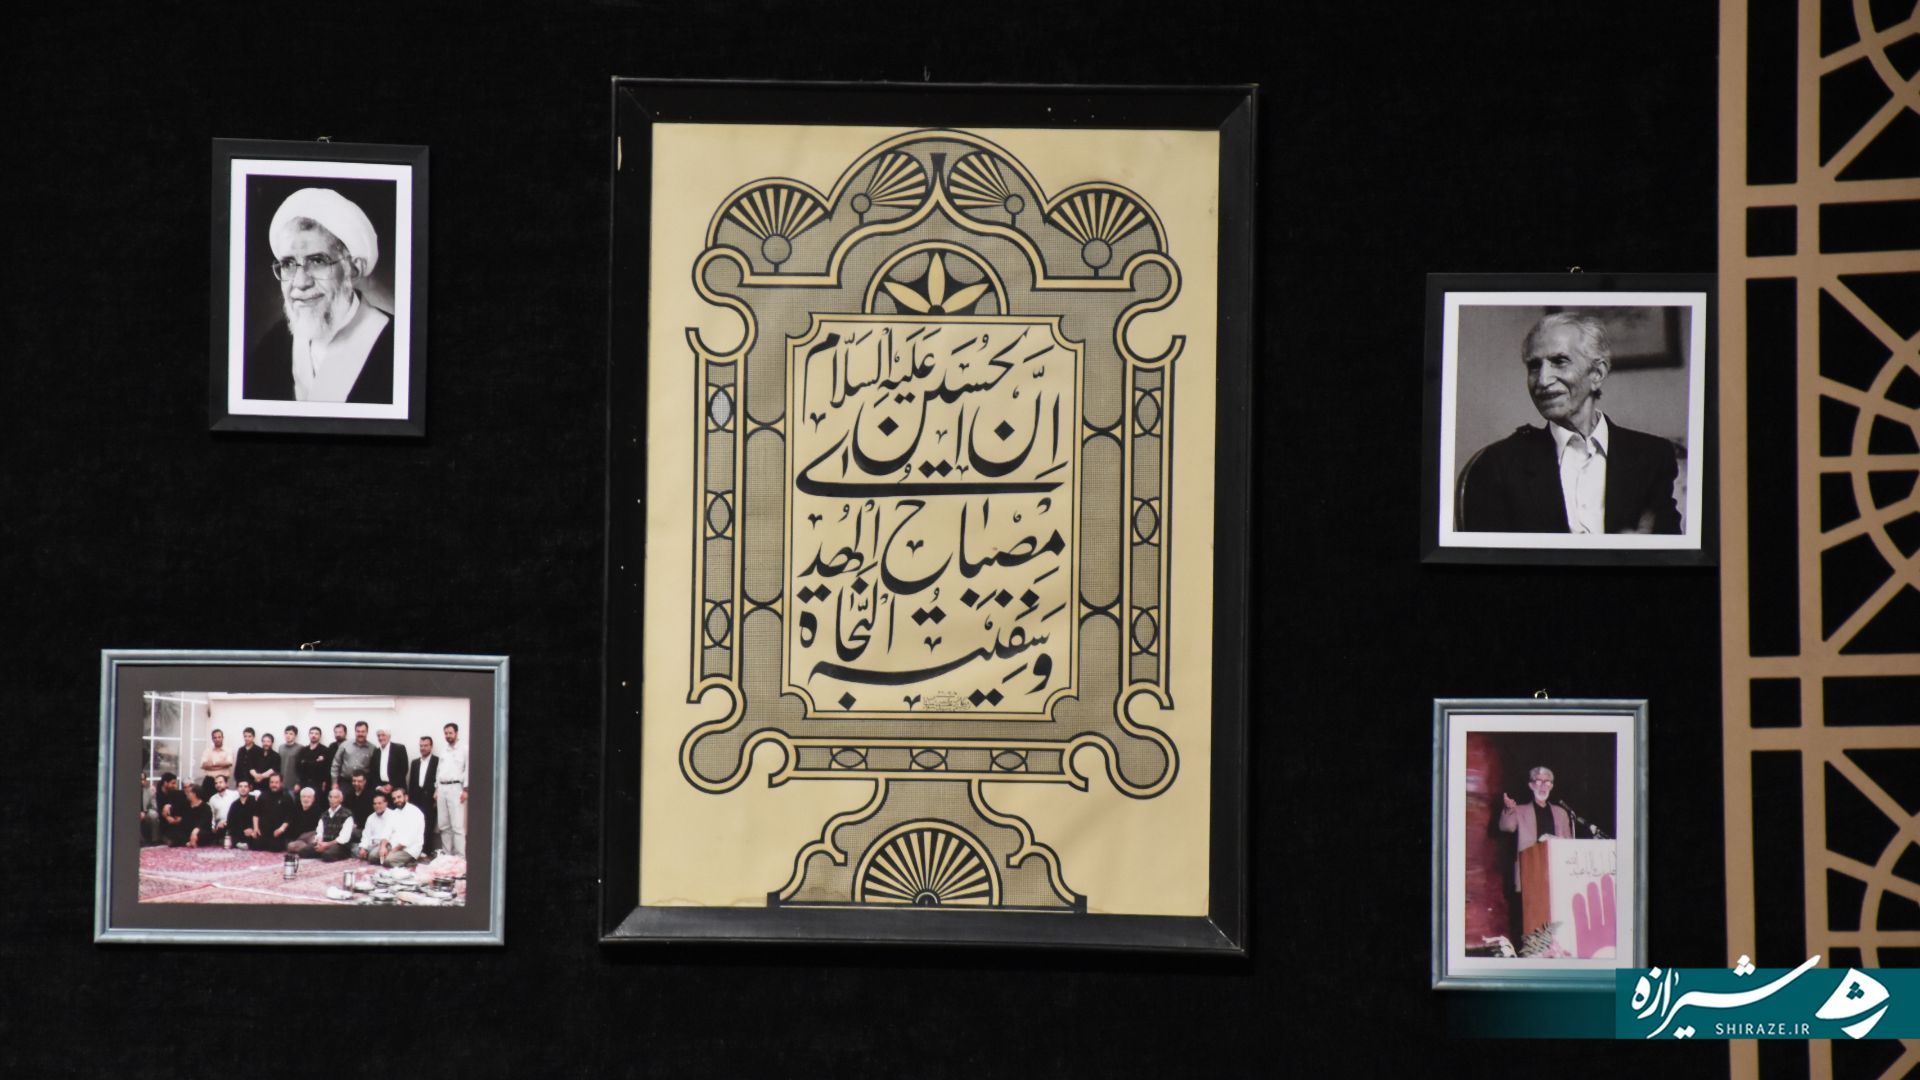 اِنَّ الحُسَین عَلَیهِ السَّلام
مِصباحُ الهُدی
وَسَفینَةُ النَّجاة
شیرازه
SHIRAZE.IR